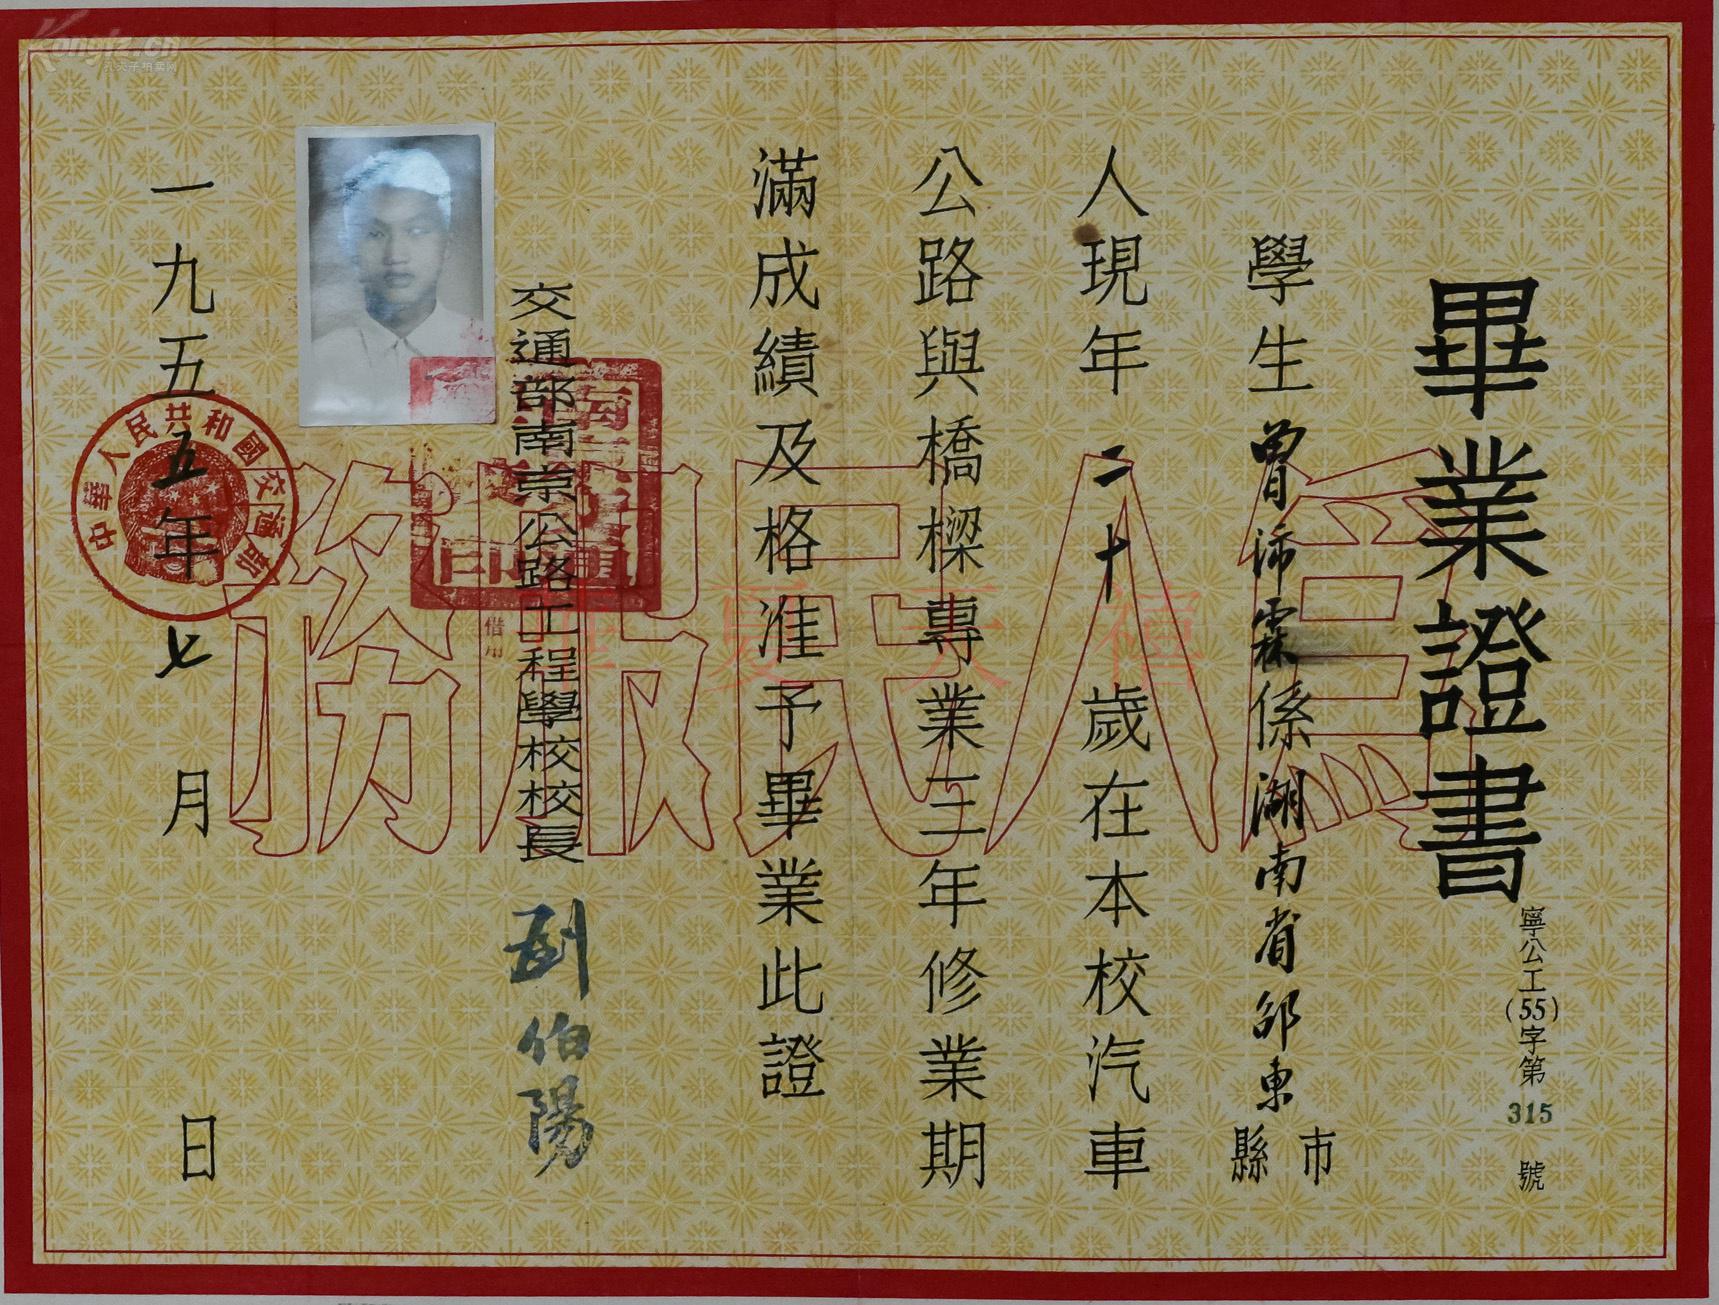 畢業證書
寧公工(55)字第315號
學生曾沛霖係湖南省邵東縣市
人現年二十歲在本校汽車
公路與橋樑專業三年修業期
滿成績及格准予畢業此證
交通部南京公路工程學校校長 劉伯陽
一九五五年七月 日
中華人民共和國交通部
借用
為人民服務
夏天禧
Kongfz.cn
孔夫子拍卖网